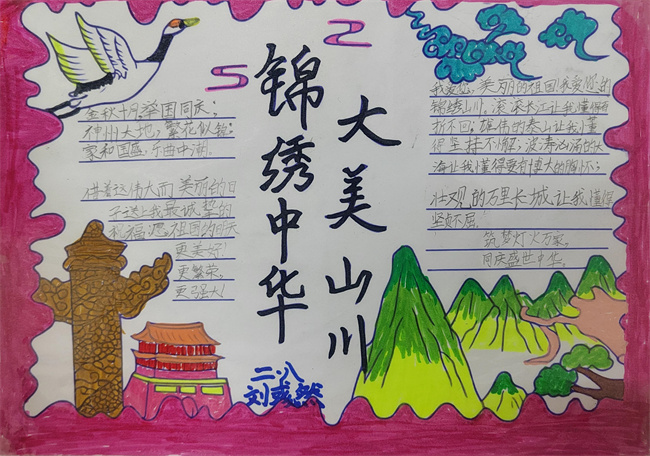 锦绣中华
大美山川
金秋十月,举国同庆;
神州大地,繁花似锦;
家和国盛,千曲中潮。
借着这伟大而美丽的日
子送上我最诚挚的
祝福:愿祖国的明天
更美好!
更繁荣,
更强大!
我爱您,美丽的祖国!我爱您的
锦绣山川,滚滚长江让我懂得百
折不回;雄伟的泰山让我懂
得坚持不懈;波涛汹涌的大
海让我懂得要有博大的胸怀;
壮观的万里长城,让我懂得
坚贞不屈。
筑梦灯火万家,
同庆盛世中华。
二.八
刘彧然